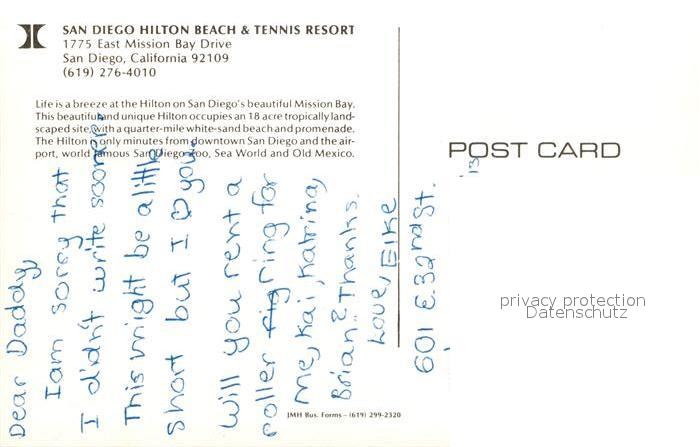 SAN DIEGO HILTON BEACH & TENNIS RESORT
1775 East Mission Bay Drive
San Diego, California 92109
(619) 276-4010
Life is a breeze at the Hilton on San Diego's beautiful Mission Bay.
This beautiful and unique Hilton occupies an 18 acre tropically land-
scaped site, with a quarter-mile white-sand beach and promenade.
The Hilton is only minutes from downtown San Diego and the air-
port, world famous San Diego Zoo, Sea World and Old Mexico.
POST CARD
Dear Daddy,
I am sorey that
I didn't write sooner
This might be a little
short but I ♡ you.
Will you rent a
roller rig ring for
me, Kai, Katrina,
Brian? Thanks.
Love, Elke
601 E. 32nd St.
privacy protection
Datenschutz
JMH Bus. Forms - (619) 299-2320